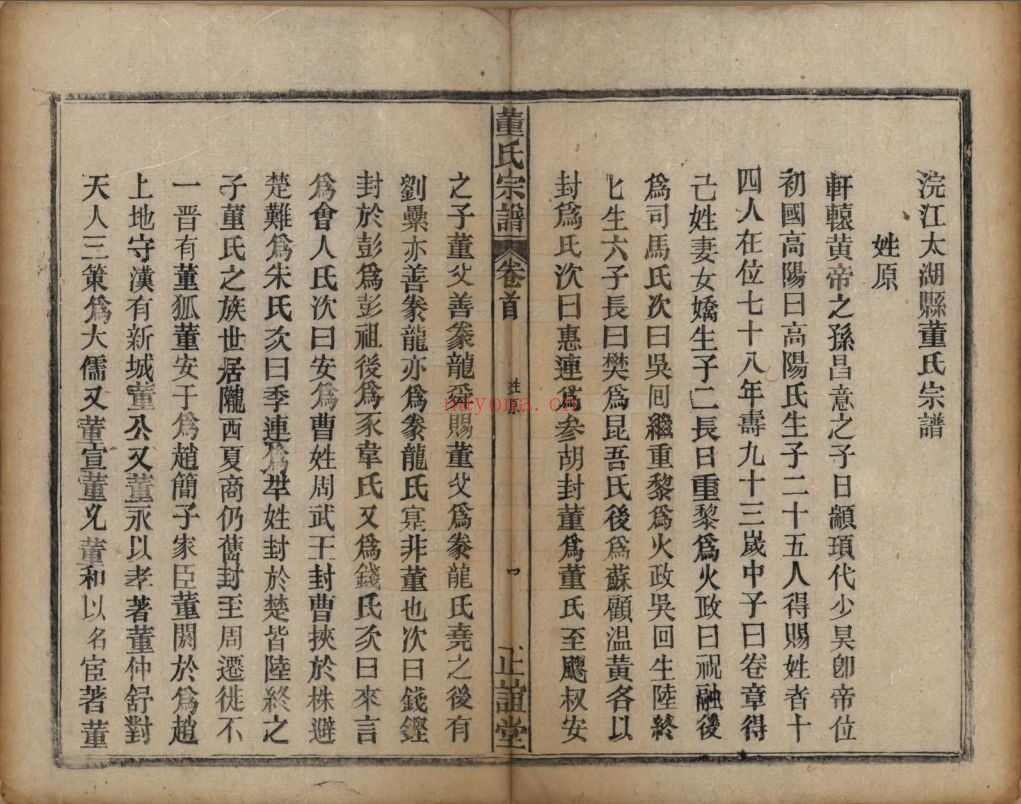 浣江太湖縣董氏宗譜
姓原
軒轅黃帝之孫昌意之子曰顓頊代少昊卽帝位
初國高陽曰高陽氏生子二十五人得賜姓者十
四人在位七十八年壽九十三歲中子曰卷章得
己姓妻女嬌生子二長曰重黎爲火政曰祝融後
爲司馬氏次曰吳囘繼重黎爲火政吳回生陸終
匕生六子長曰樊爲昆吾氏後爲蘇顧溫黃各以
封爲氏次曰惠連爲參胡封董爲董氏至飂叔安
董氏宗譜 卷首 姓原 一 正誼堂
之子董父善豢龍舜賜董父爲豢龍氏堯之後有
劉纍亦善豢龍亦爲豢龍氏寔非董也次曰錢鏗
封於彭爲彭祖後爲豕韋氏又爲錢氏次曰來言
爲會人氏次曰安爲曹姓周武王封曹挾於株避
楚難爲朱氏次曰季連爲羋姓封於楚皆陸終之
子董氏之族世居隴西夏商仍舊封至周遷徙不
一晋有董狐董安于爲趙簡子家臣董閼於爲趙
上地守漢有新城董公又董永以孝著董仲舒對
天人三策爲大儒又董宣董允董和以名宦著董
nayona.cn